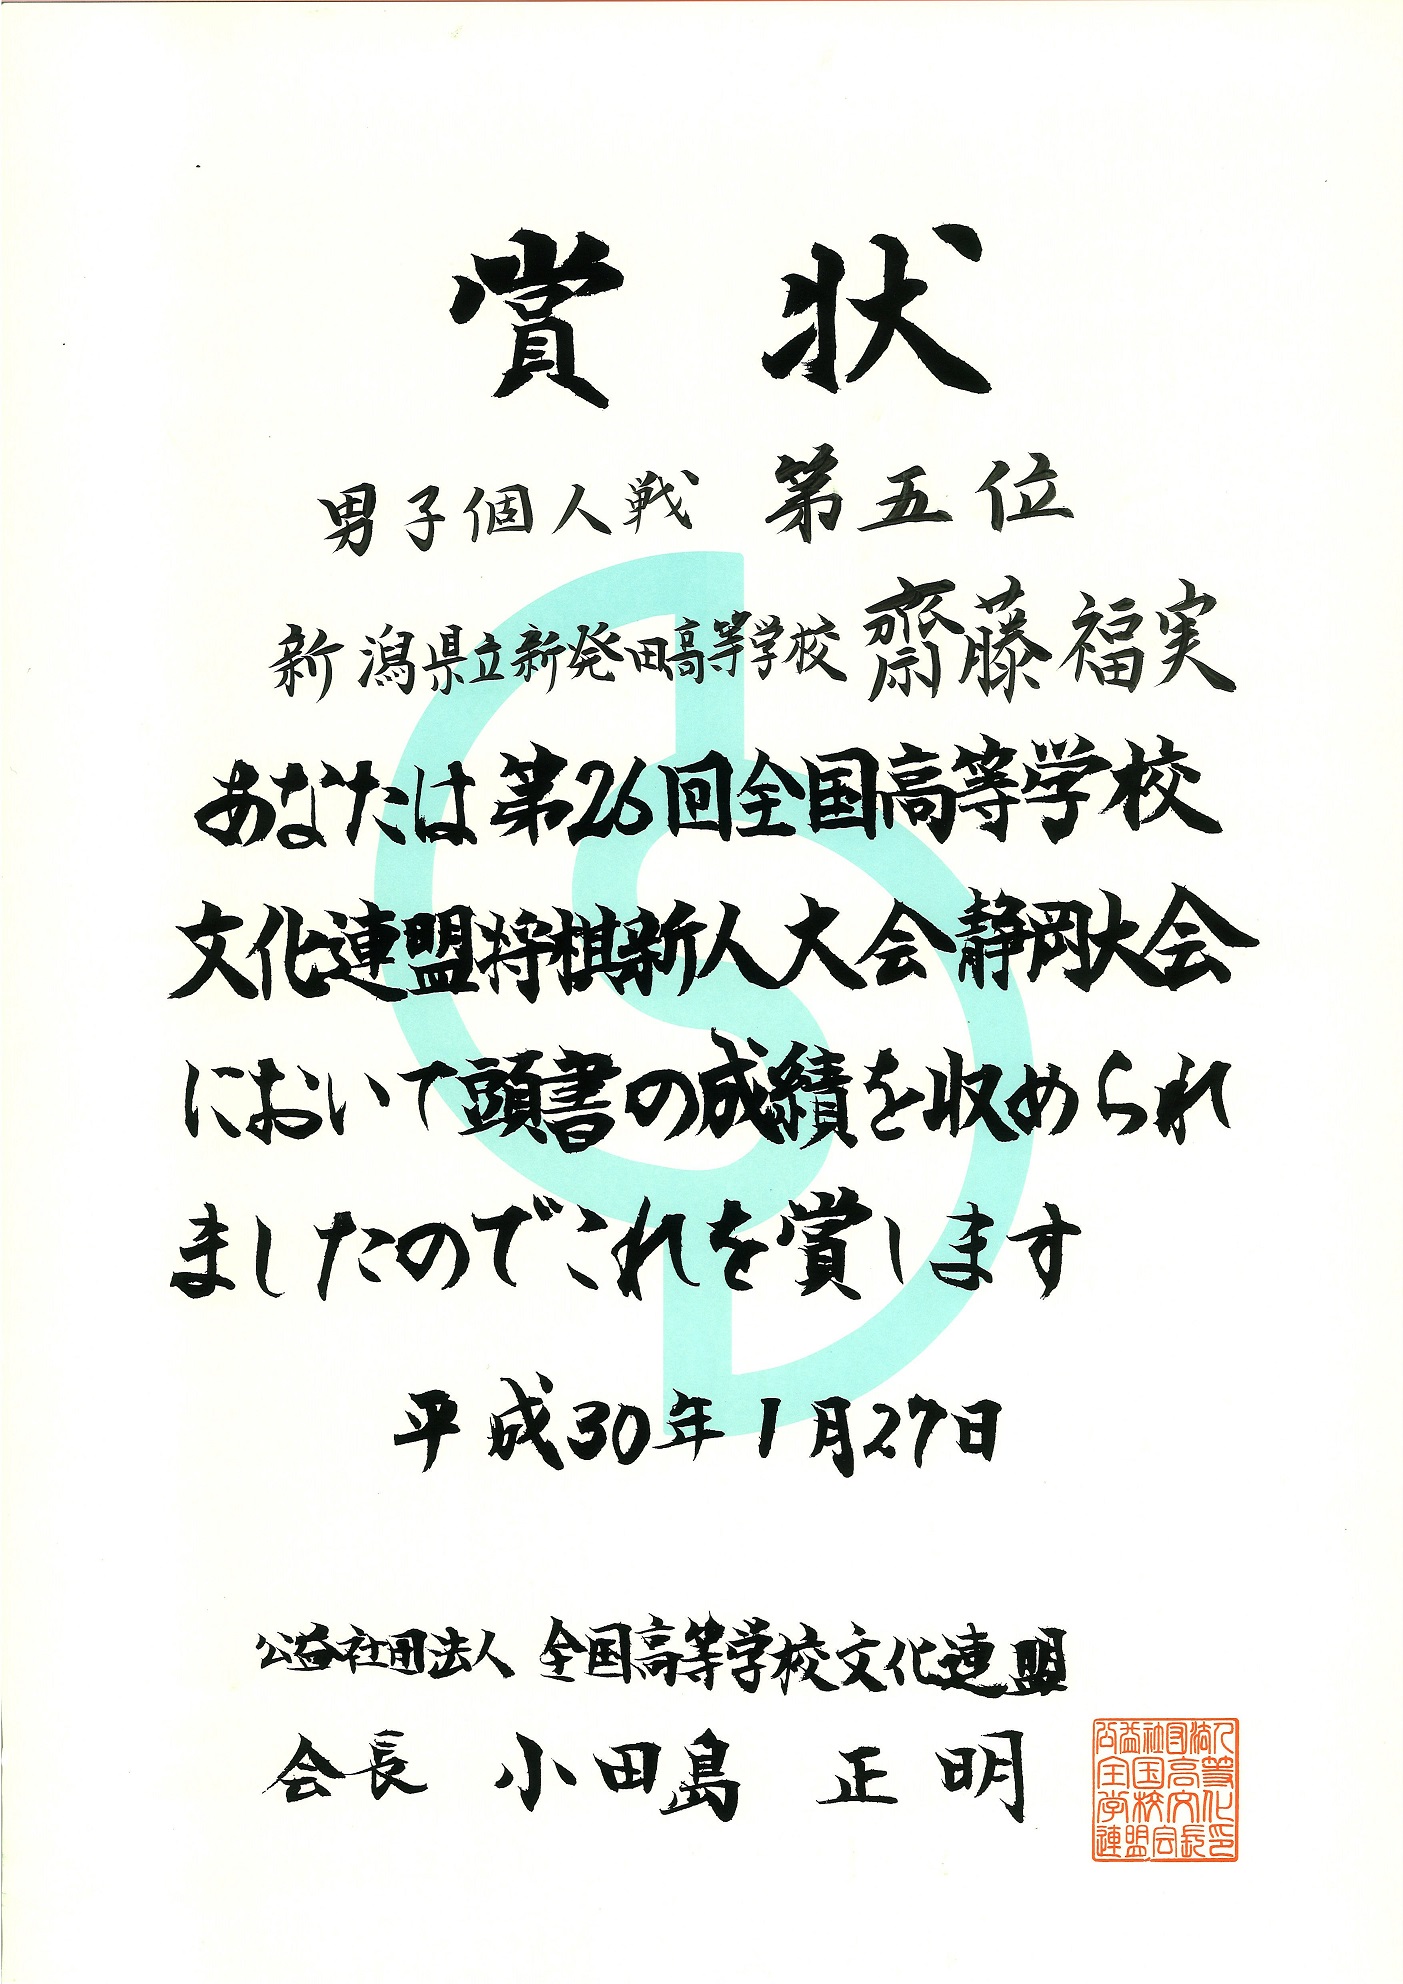 賞状
男子個人戦 第五位
新潟県立新発田高等学校 齋藤福実
あなたは第26回全国高等学校
文化連盟将棋新人大会静岡大会
において頭書の成績を収められ
ましたのでこれを賞します
平成30年1月27日
公益社団法人 全国高等学校文化連盟
会長 小田島 正明
公益社団法人
全国高等
学校文化
連盟会長印